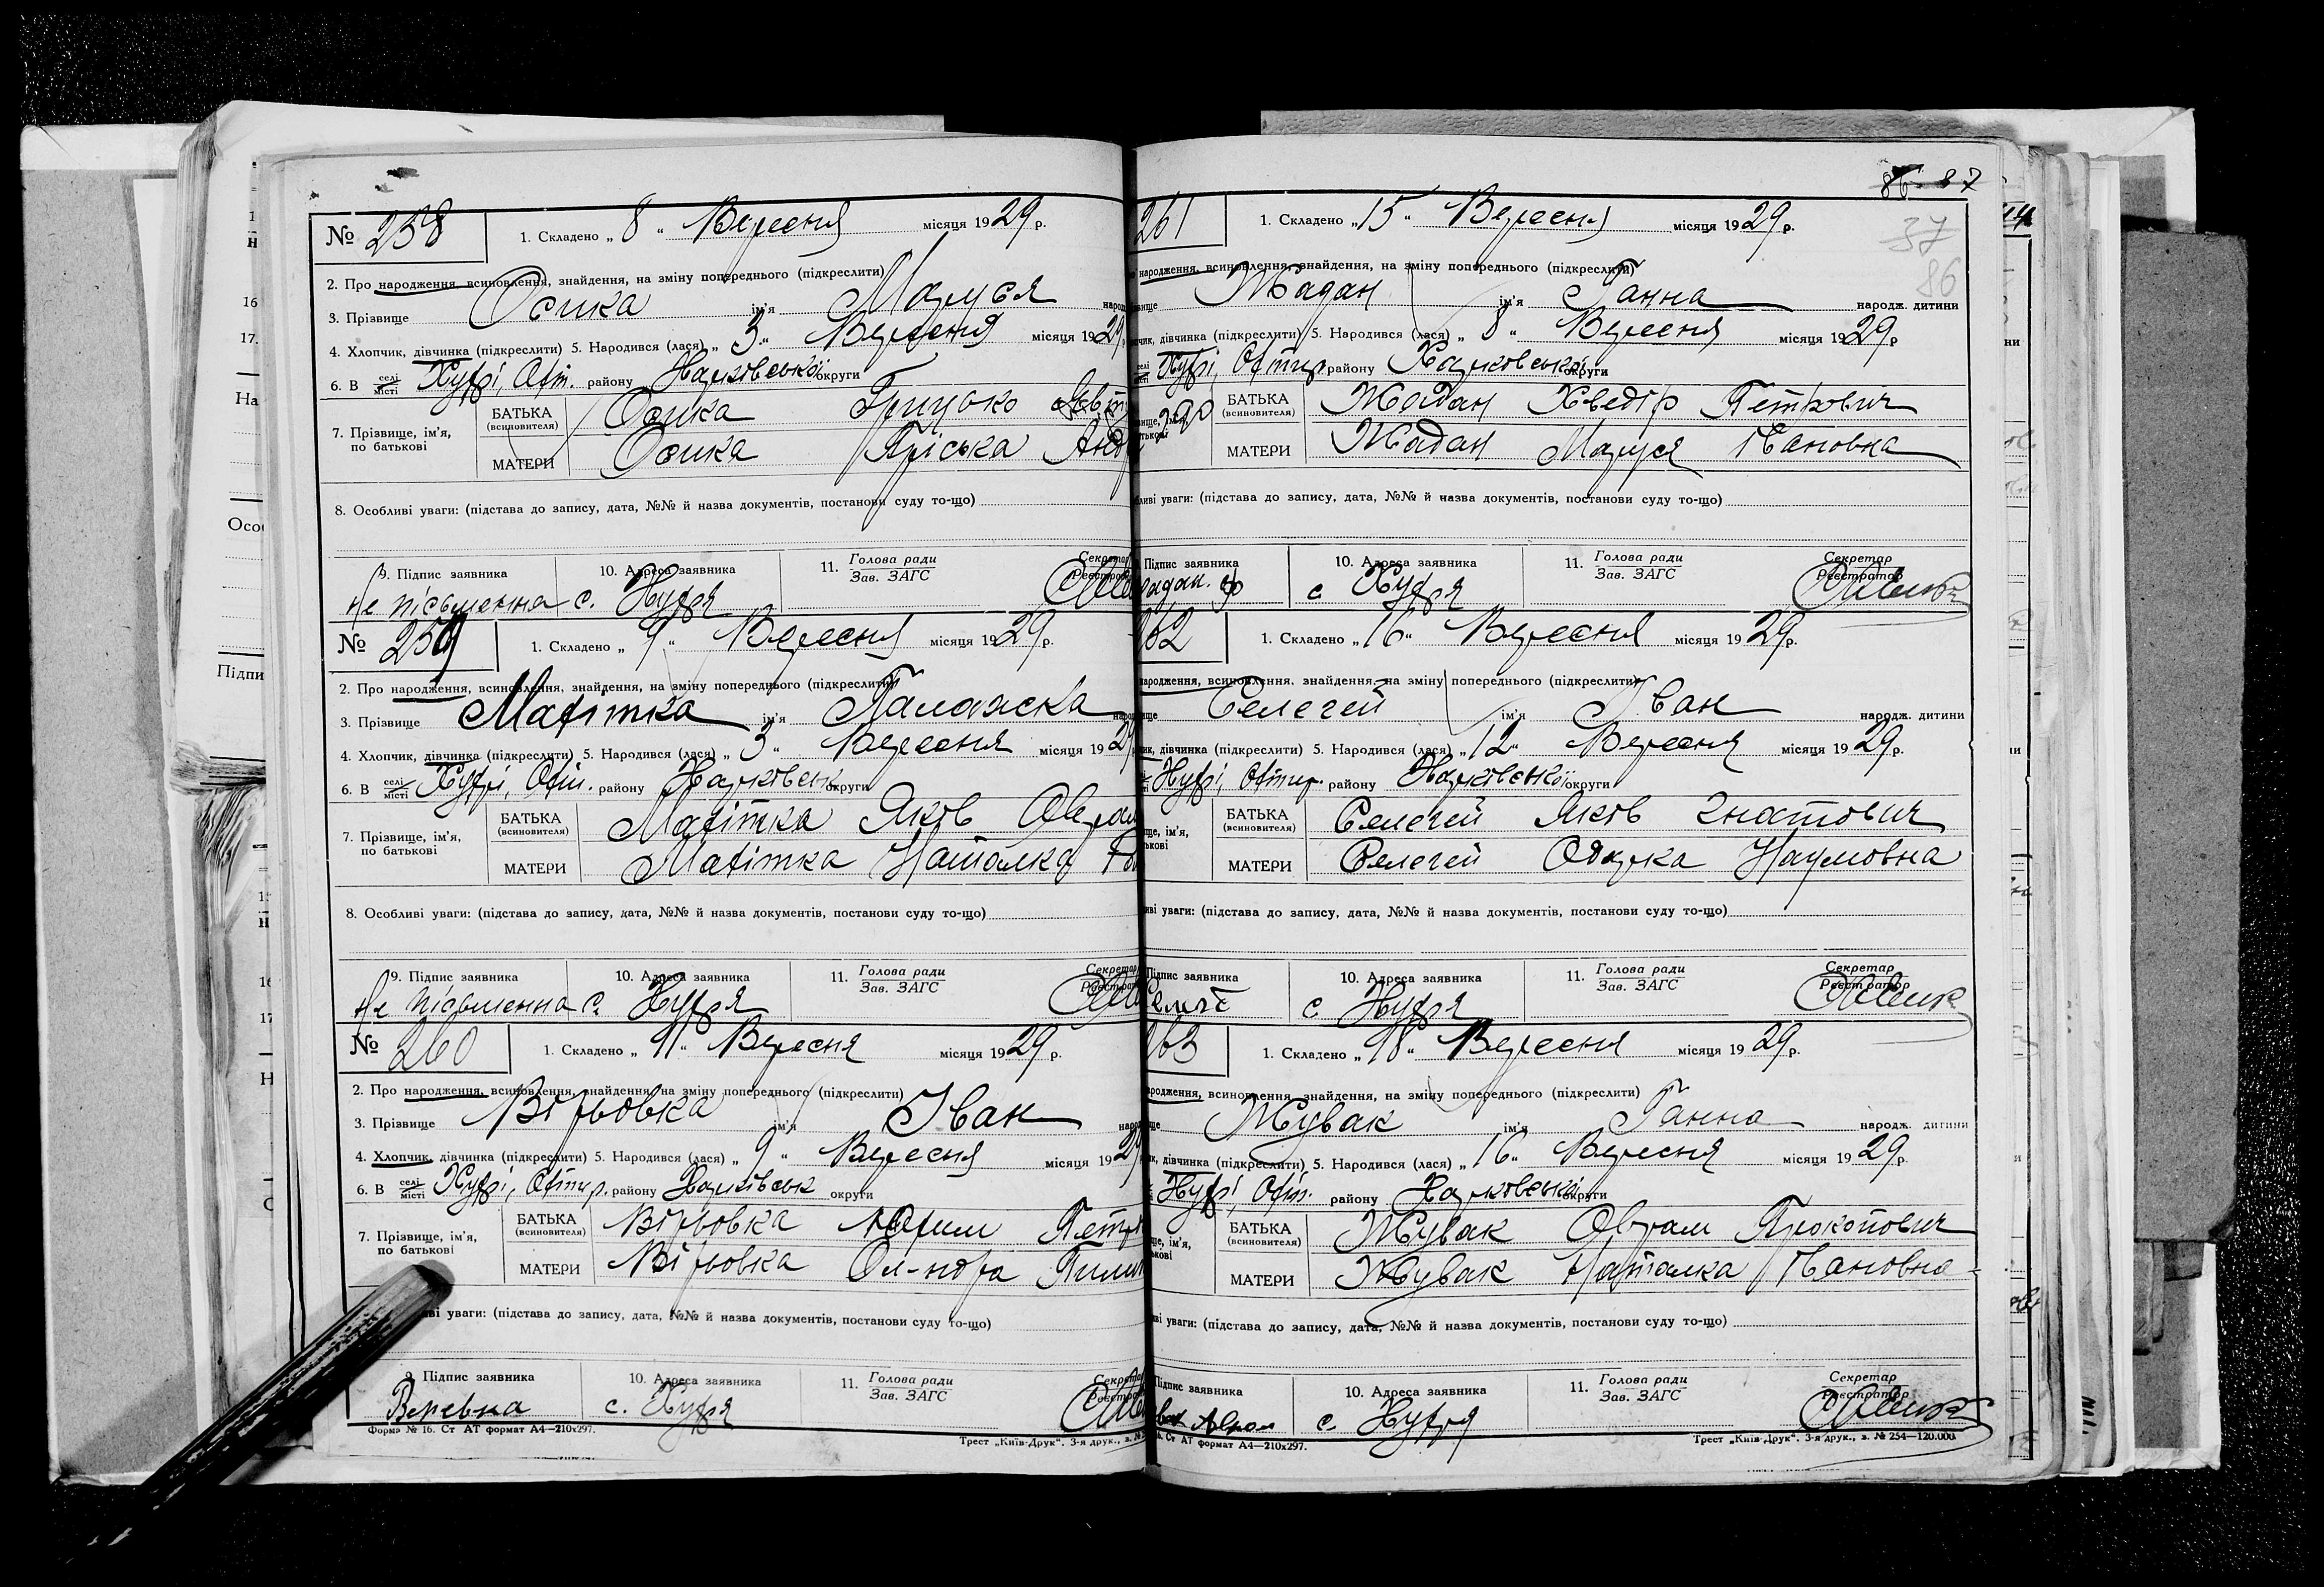 № 258 1. Складено „ 8 “ Вересня місяця 1929 р.
2. Про народження, всиновлення, знайдення, на зміну попереднього (підкреслити)
3. Прізвище Осика ім'я Маруся народ
4. Хлопчик, дівчинка (підкреслити) 5. Народився (лася) „ 3 “ Вересня місяця 1929
6. В селі місті Хухрі, Охт. району Харківської округи
7. Прізвище, ім'я, по батькові
БАТЬКА (всиновителя) Осика Грицько
МАТЕРИ Осика Пріська Анд
8. Особливі уваги: (підстава до запису, дата, №№ й назва документів, постанови суду то-що)
9. Підпис заявника 10. Адреса заявника 11. Голова ради Зав. ЗАГС Секретар Реєстратор
не пісьменна с. Хухря
№ 259 1. Складено „ 9 “ Вересня місяця 1929 р.
2. Про народження, всиновлення, знайдення, на зміну попереднього (підкреслити)
3. Прізвище ім'я Паламжска
4. Хлопчик, дівчинка (підкреслити) 5. Народився (лася) „ 3 “ Вересня місяця 1929
6. В селі місті Хухрі, Охт. району Харківськ округи
7. Прізвище, ім'я, по батькові
БАТЬКА (всиновителя) Яків
МАТЕРИ Наталка
8. Особливі уваги: (підстава до запису, дата, №№ й назва документів, постанови суду то-що)
9. Підпис заявника 10. Адреса заявника 11. Голова ради Зав. ЗАГС Секретар Реєстратор
Не пісьменна с. Хухря
№ 260 1. Складено „ 11 “ Вересня місяця 1929 р.
2. Про народження, всиновлення, знайдення, на зміну попереднього (підкреслити)
3. Прізвище Вірьовка ім'я Іван народ
4. Хлопчик, дівчинка (підкреслити) 5. Народився (лася) „ 9 “ Вересня місяця 1929
6. В селі місті Хухрі, Охтир. району Харківськ округи
7. Прізвище, ім'я, по батькові
БАТЬКА (всиновителя) Вірьовка Юхим Петр
МАТЕРИ Вірьовка Ол-ндра Пили
ві уваги: (підстава до запису, дата, №№ й назва документів, постанови суду то-що)
9. Підпис заявника 10. Адреса заявника 11. Голова ради Зав. ЗАГС Секретар Реєстратор
Веревка с. Хухря
Форма № 16. Ст АТ формат А4—210х297.
Трест „Київ-Друк“. 3-я друк., з. №
86 87
37
86
261 1. Складено „ 15 “ Вересня місяця 1929 р.
народження, всиновлення, знайдення, на зміну попереднього (підкреслити)
Жадан ім'я Ганна народж. дитини
дівчинка (підкреслити) 5. Народився (лася) „ 8 “ Вересня місяця 1929 р
Хухрі, Охтир району Харковської округи
БАТЬКА (всиновителя) Жадан Хведір Петрович
МАТЕРИ Жадан Маруся Івановна
уваги: (підстава до запису, дата, №№ й назва документів, постанови суду то-що)
Підпис заявника 10. Адреса заявника 11. Голова ради Зав. ЗАГС Секретар Реєстратор
адан. ф с Хухря
62 1. Складено „ 16 “ Вересня місяця 1929 р.
народження, всиновлення, знайдення, на зміну попереднього (підкреслити)
Селегей ім'я Іван народж. дитини
дівчинка (підкреслити) 5. Народився (лася) „ 12 “ Вересня місяця 1929 р.
Хухрі, Охтир. району Харківської округи
БАТЬКА (всиновителя) Селегей Яків Гнатович
МАТЕРИ Селегей Одарка Наумовна
уваги: (підстава до запису, дата, №№ й назва документів, постанови суду то-що)
Підпис заявника 10. Адреса заявника 11. Голова ради Зав. ЗАГС Секретар Реєстратор
с Хухря
63 1. Складено „ 18 “ Вересня місяця 1929 р.
народження, всиновлення, знайдення, на зміну попереднього (підкреслити)
Жувак ім'я Ганна народж. дитини
дівчинка (підкреслити) 5. Народився (лася) „ 16 “ Вересня місяця 1929 р.
Хухрі, Охт. району Харковської округи
БАТЬКА (всиновителя) Жувак Оврам Прокопович
МАТЕРИ Жувак Наталка Івановна
уваги: (підстава до запису, дата, №№ й назва документів, постанови суду то-що)
Підпис заявника 10. Адреса заявника 11. Голова ради Зав. ЗАГС Секретар Реєстратор
с. Хухря
Ст АТ формат А4—210х297.
Трест „Київ-Друк“. 3-я друк., з. № 254—120.000.